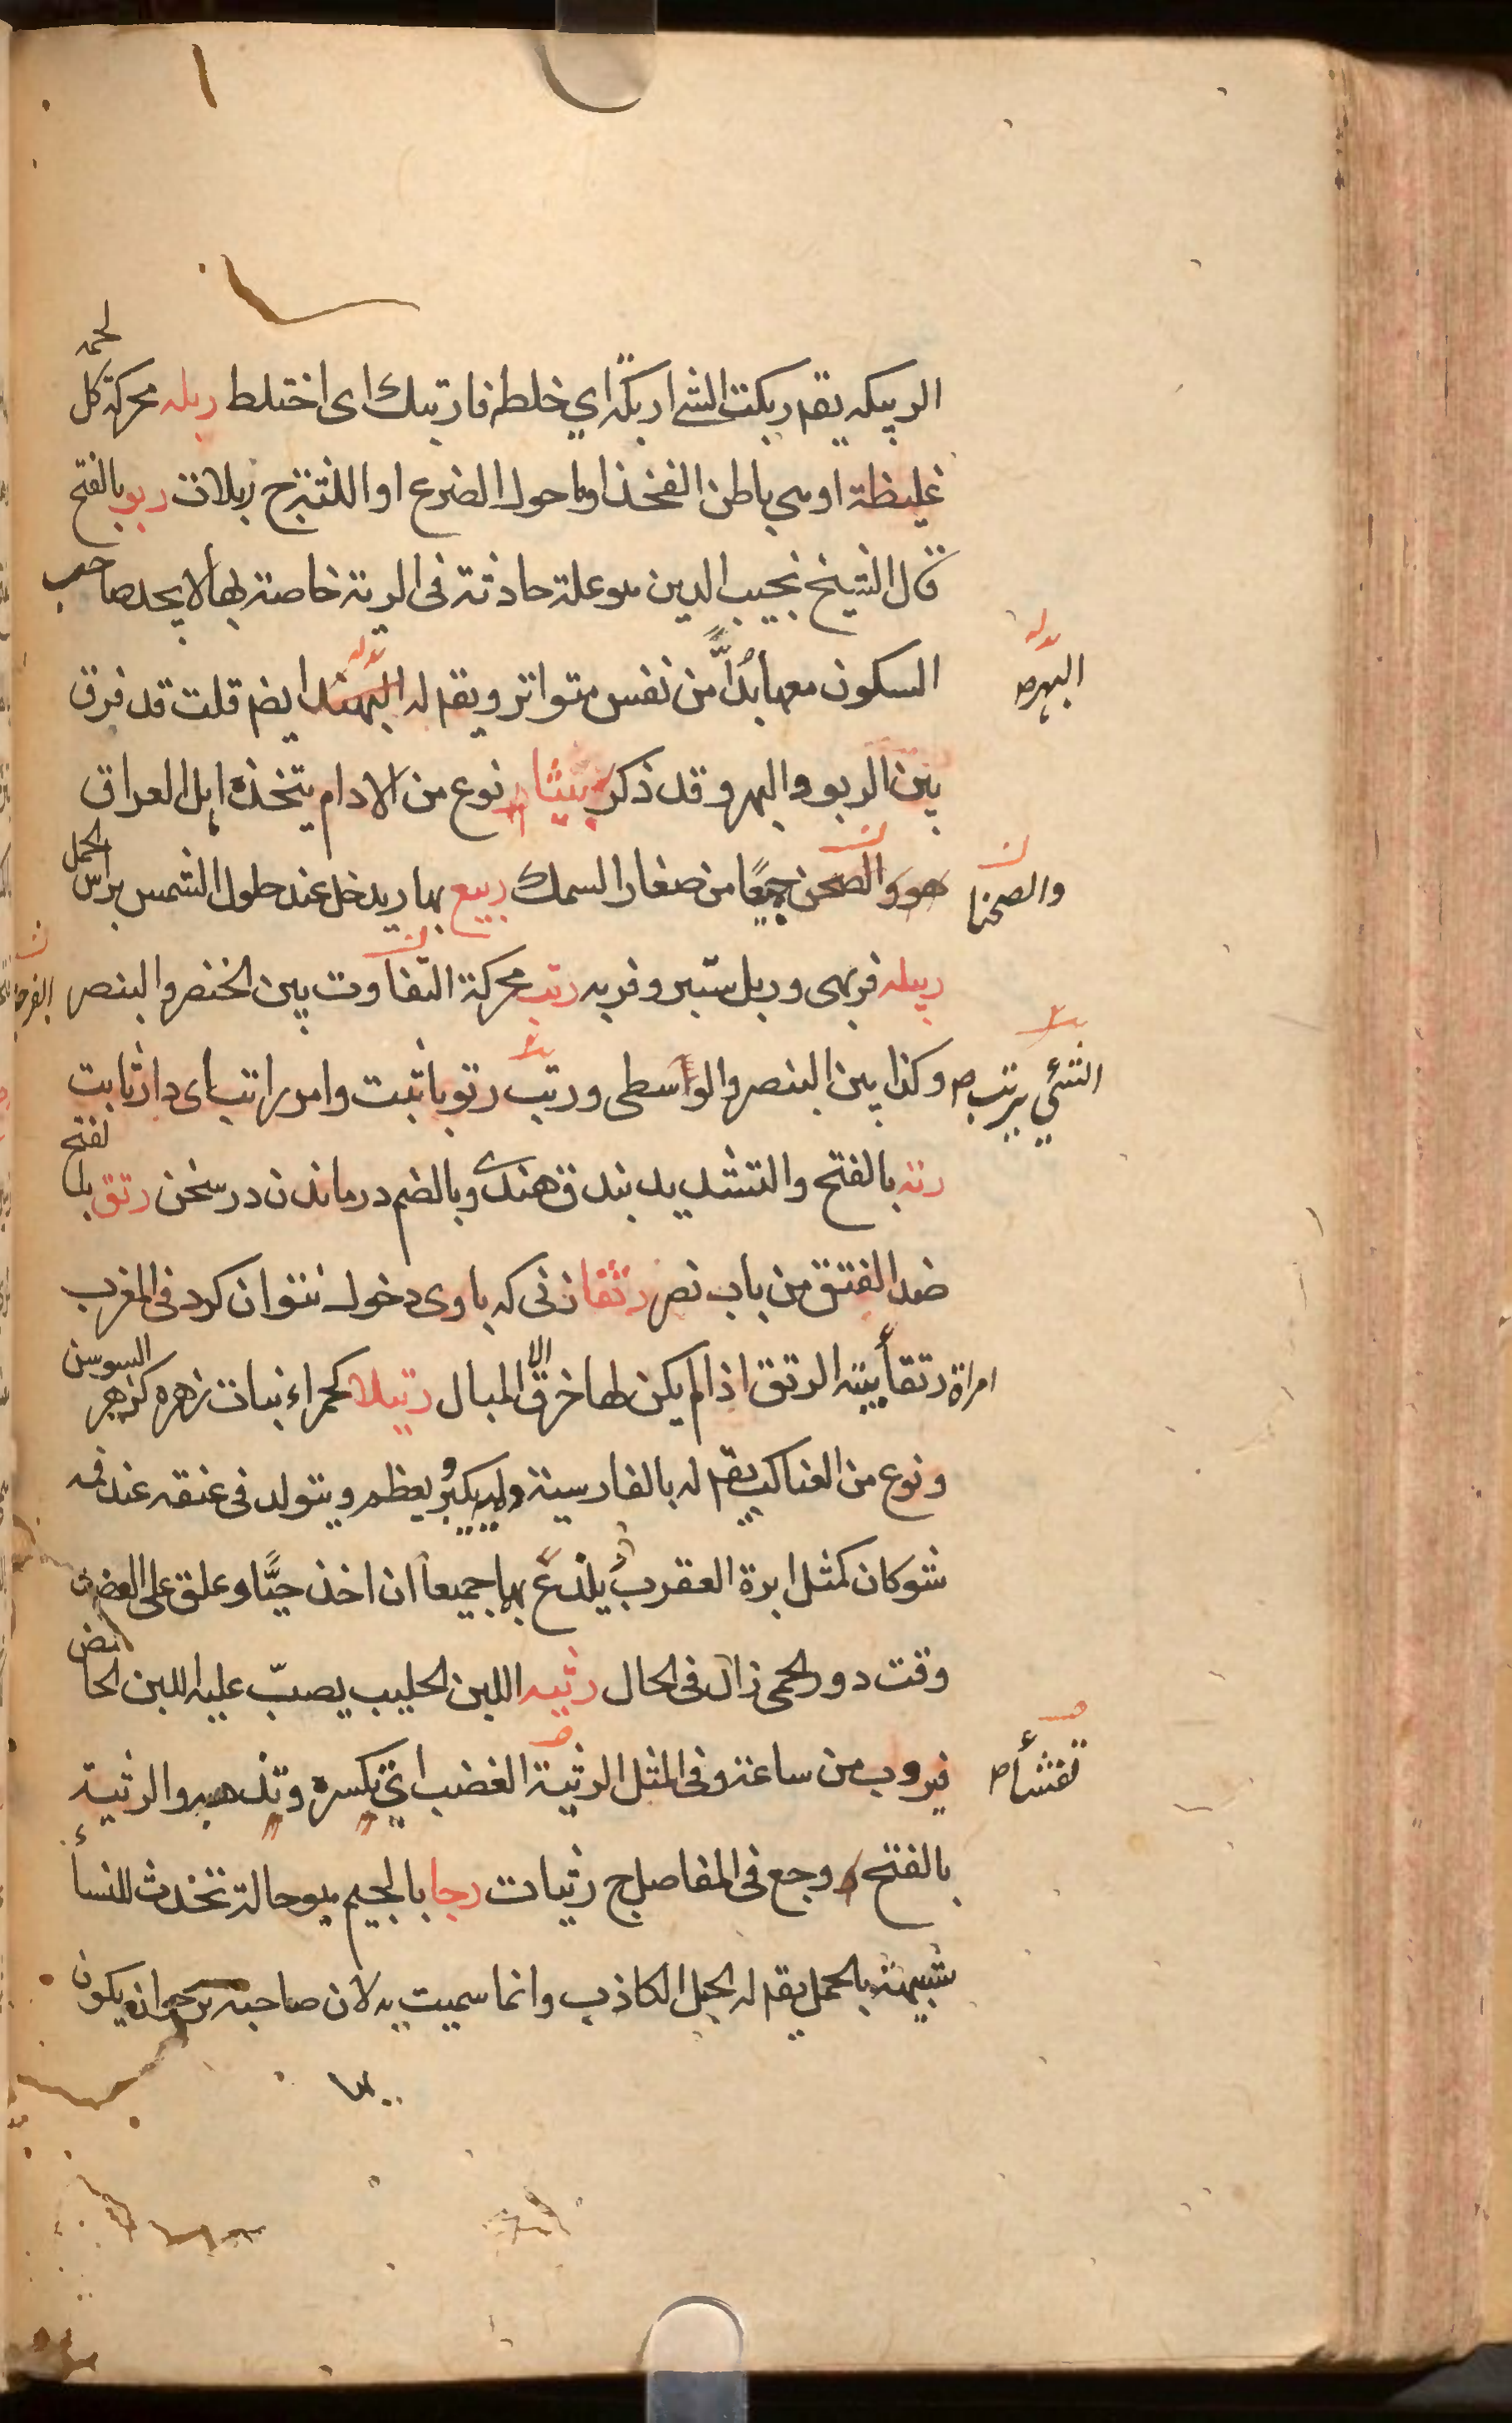 الربيكه يقم ربكت الشئ اربكه اي خلطه فارتبك اى اختلط ربله محركة كل لحمه
غليظة او هي باطن الفخذ او ما حول الضرع او اللتنزح ربلات ربو بالفتح
قال الشيخ نجيب الدين هو علة حادثة فى الرية خاصة بها لا يجد صاحب
السكون معها بُدًّا من نفس متواتر ويقم له ايضم قلت قد فرق
البهر ص
بين الربو والبهر وقد ذكر ربيثا نوع من الادام يتخذه اهل العراق
هو والصحن جميعًا من صغار السمك ربيع بهار يدخل عند حلول الشمس براس الحمل
والصحنا
ربيله فربهى وربل ستبر وفربه رتب محركة التفاوت بين الخنصر والبنصر
الفرجة
وكذا بين البنصر والواسطى ورتب رتوبا ثبت وامر راتب اى دار ثابت
الشئي يرتب ص
رته بالفتح والتشديد بندق هندى وبالضم درماندن در سخن رتق بالفتح
ضد الفتق من باب نصر رتقا زنى كه باوى دخول نتوان كرد فى المغرب
امراة رتقأ بينه الرتق اذا لم يكن لها خرق الا المبال رتيلا كحمراء نبات زهره كزهر السوسن
ونوع من العناكب يقم له بالفارسية يكبر ويعظم ويتولد فى عنقه عند فمه
شوكان كمثل ابرة العقرب يلذع بها جميعا ان اخذ حيًّا وعلق على العضد
وقت دور الحمى زال فى الحال رثيه اللبن الحليب يصبّ عليه اللبن الحامض
فيروب من ساعته وفى المثل الرثية الغضب اي تكسره وتذهبه والرثية
تفثأ ص
بالفتح وجع فى المفاصل ج رثيات رجا بالجيم هو حالة تحدث للنسأ
شبيهة بالحمل يقم له الحبل الكاذب وانما سميت به لان صاحبه يرجو انه يكون